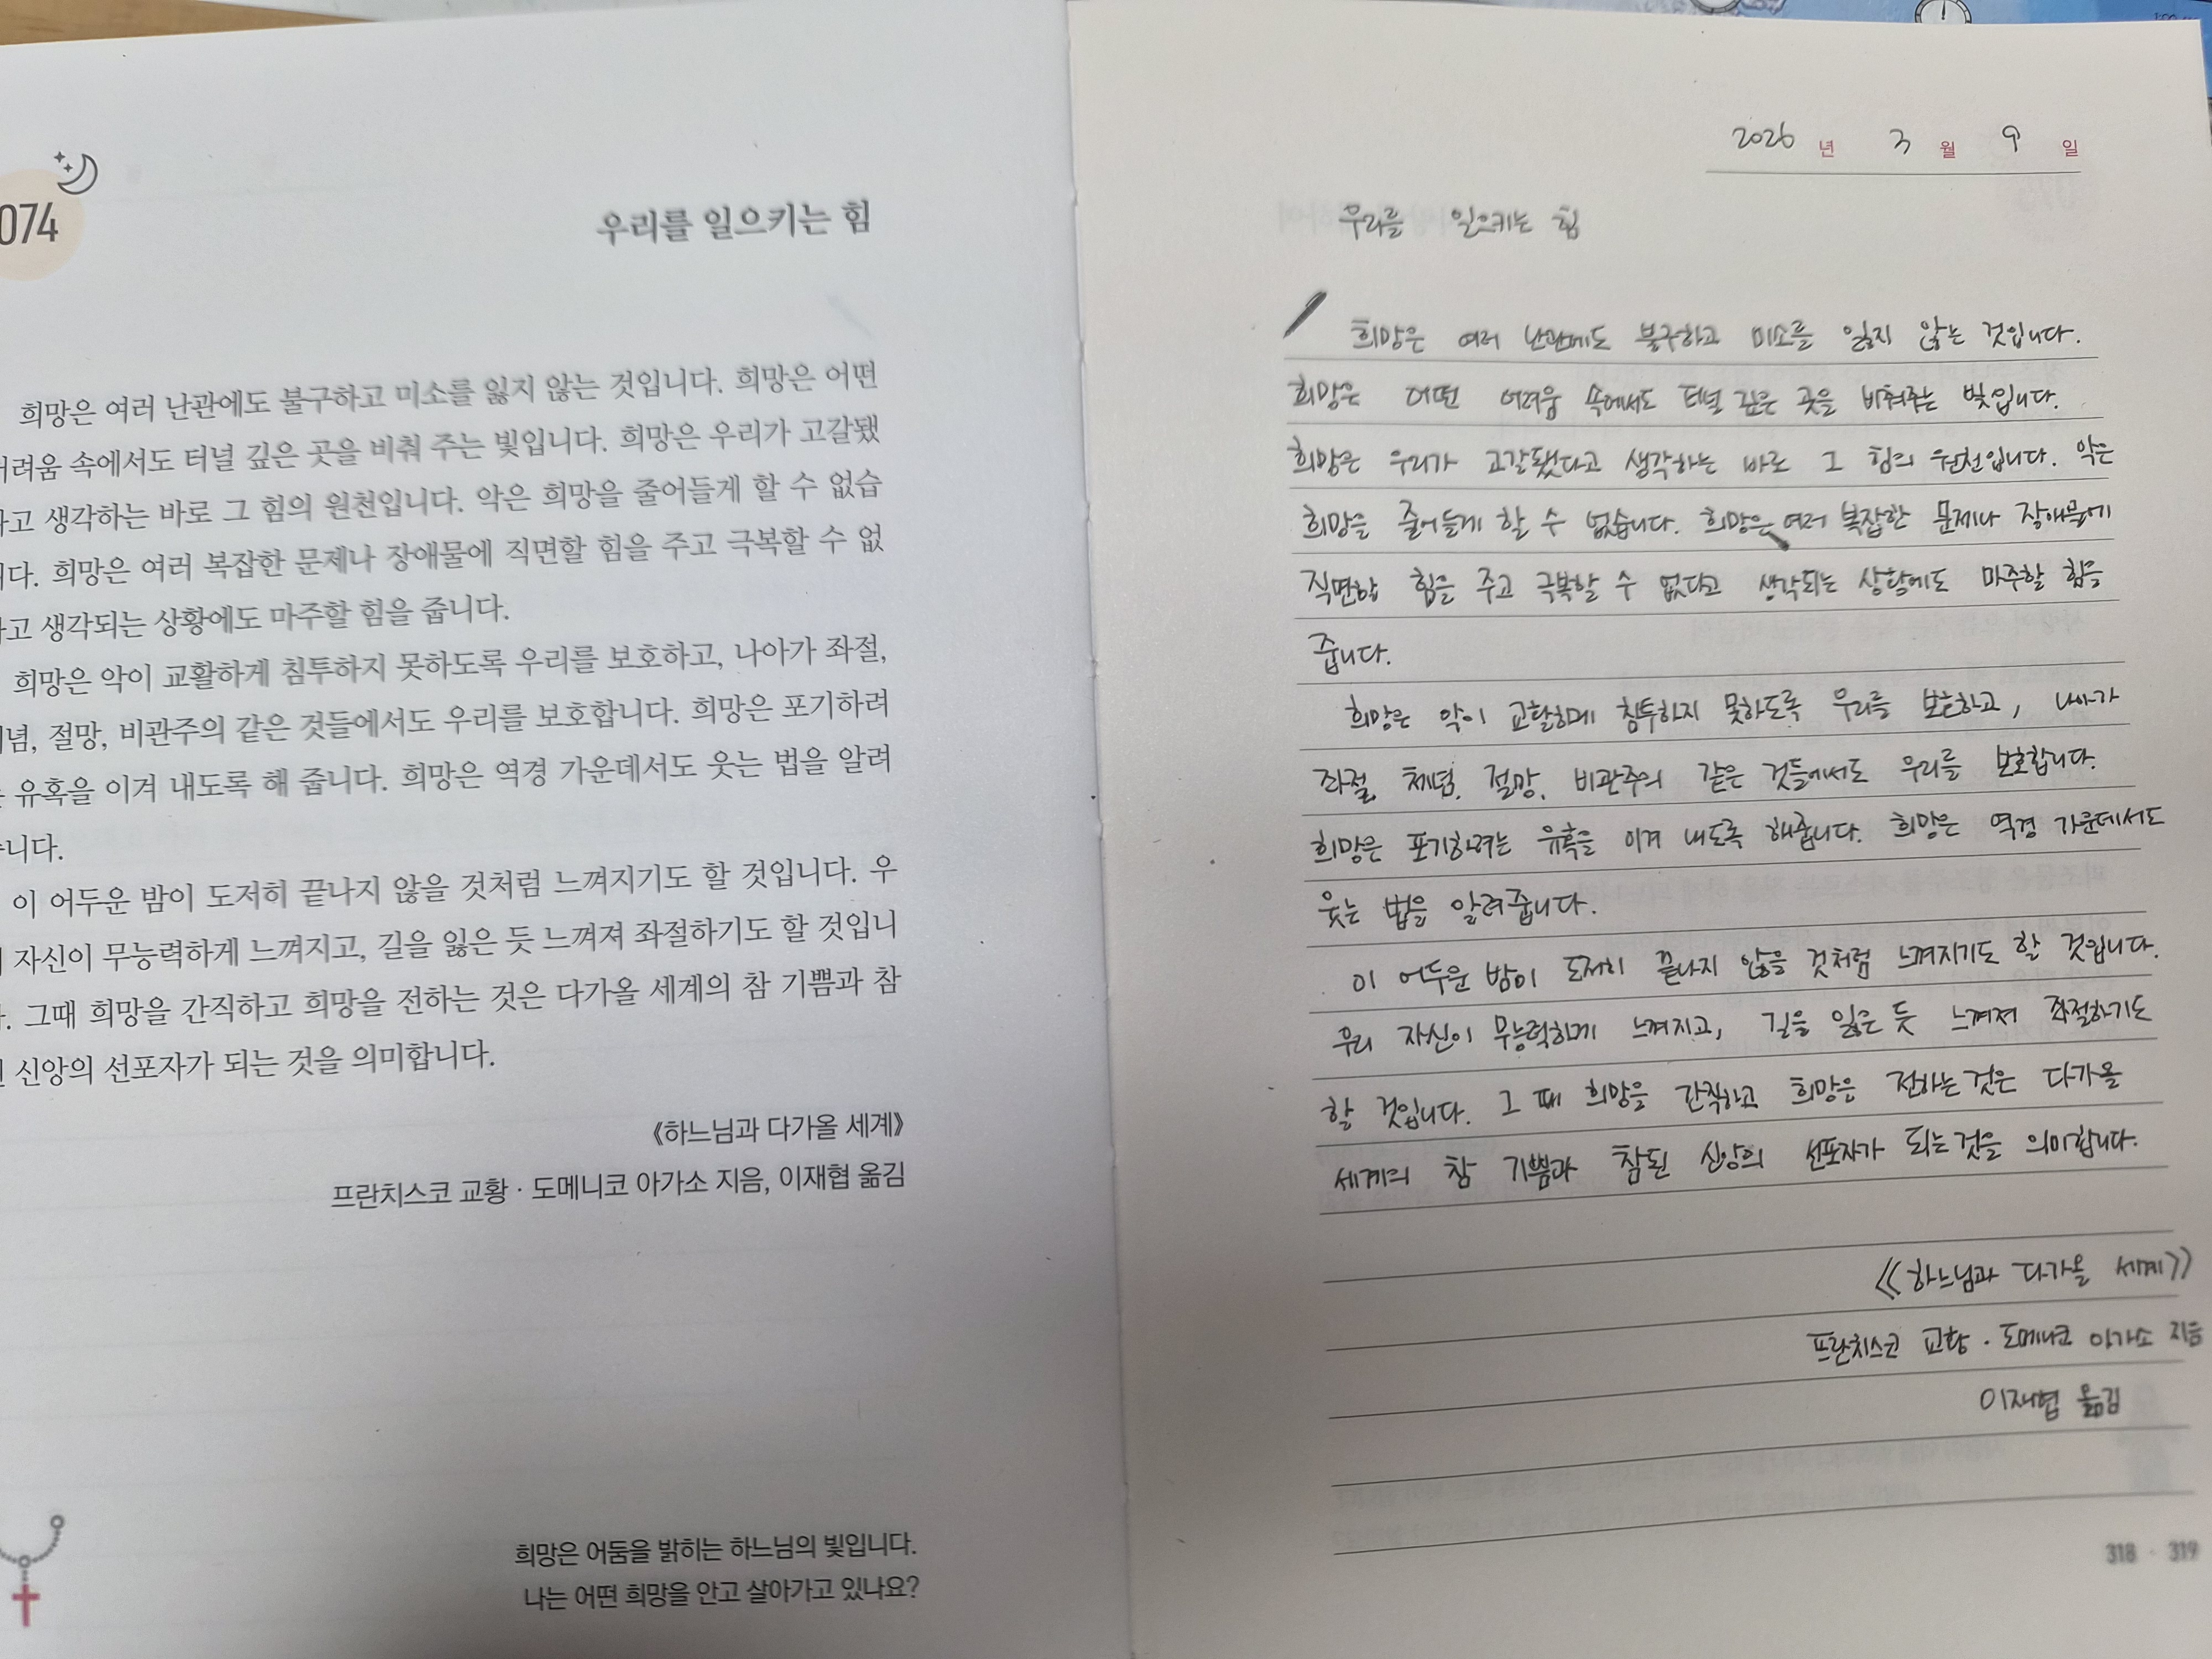 074
우리를 일으키는 힘
희망은 여러 난관에도 불구하고 미소를 잃지 않는 것입니다. 희망은 어떤
어려움 속에서도 터널 깊은 곳을 비춰 주는 빛입니다. 희망은 우리가 고갈됐
고 생각하는 바로 그 힘의 원천입니다. 악은 희망을 줄어들게 할 수 없습
다. 희망은 여러 복잡한 문제나 장애물에 직면할 힘을 주고 극복할 수 없
고 생각되는 상황에도 마주할 힘을 줍니다.
희망은 악이 교활하게 침투하지 못하도록 우리를 보호하고, 나아가 좌절,
념, 절망, 비관주의 같은 것들에서도 우리를 보호합니다. 희망은 포기하려
유혹을 이겨 내도록 해 줍니다. 희망은 역경 가운데서도 웃는 법을 알려
니다.
이 어두운 밤이 도저히 끝나지 않을 것처럼 느껴지기도 할 것입니다. 우
자신이 무능력하게 느껴지고, 길을 잃은 듯 느껴져 좌절하기도 할 것입니
. 그때 희망을 간직하고 희망을 전하는 것은 다가올 세계의 참 기쁨과 참
신앙의 선포자가 되는 것을 의미합니다.
《하느님과 다가올 세계》
프란치스코 교황 · 도메니코 아가소 지음, 이재협 옮김
희망은 어둠을 밝히는 하느님의 빛입니다.
나는 어떤 희망을 안고 살아가고 있나요?
2026 년 3 월 9 일
우리를 일으키는 힘
희망은 여러 난관에도 불구하고 미소를 잃지 않는 것입니다.
희망은 어떤 어려움 속에서도 터널 깊은 곳을 비춰주는 빛입니다.
희망은 우리가 고갈됐다고 생각하는 바로 그 힘의 원천입니다. 악은
희망을 줄어들게 할 수 없습니다. 희망은 여러 복잡한 문제나 장애물에
직면할 힘을 주고 극복할 수 없다고 생각되는 상황에도 마주할 힘을
줍니다.
희망은 악이 교활하게 침투하지 못하도록 우리를 보호하고, 나아가
좌절, 체념, 절망, 비관주의 같은 것들에서도 우리를 보호합니다.
희망은 포기하려는 유혹을 이겨 내도록 해줍니다. 희망은 역경 가운데서도
웃는 법을 알려줍니다.
이 어두운 밤이 도저히 끝나지 않을 것처럼 느껴지기도 할 것입니다.
우리 자신이 무능력하게 느껴지고, 길을 잃은 듯 느껴져 좌절하기도
할 것입니다. 그 때 희망을 간직하고 희망은 전하는 것은 다가올
세계의 참 기쁨과 참된 신앙의 선포자가 되는 것을 의미합니다.
《하느님과 다가올 세계》
프란치스코 교황 · 도메니코 아가소 지음
이재협 옮김
318 · 319